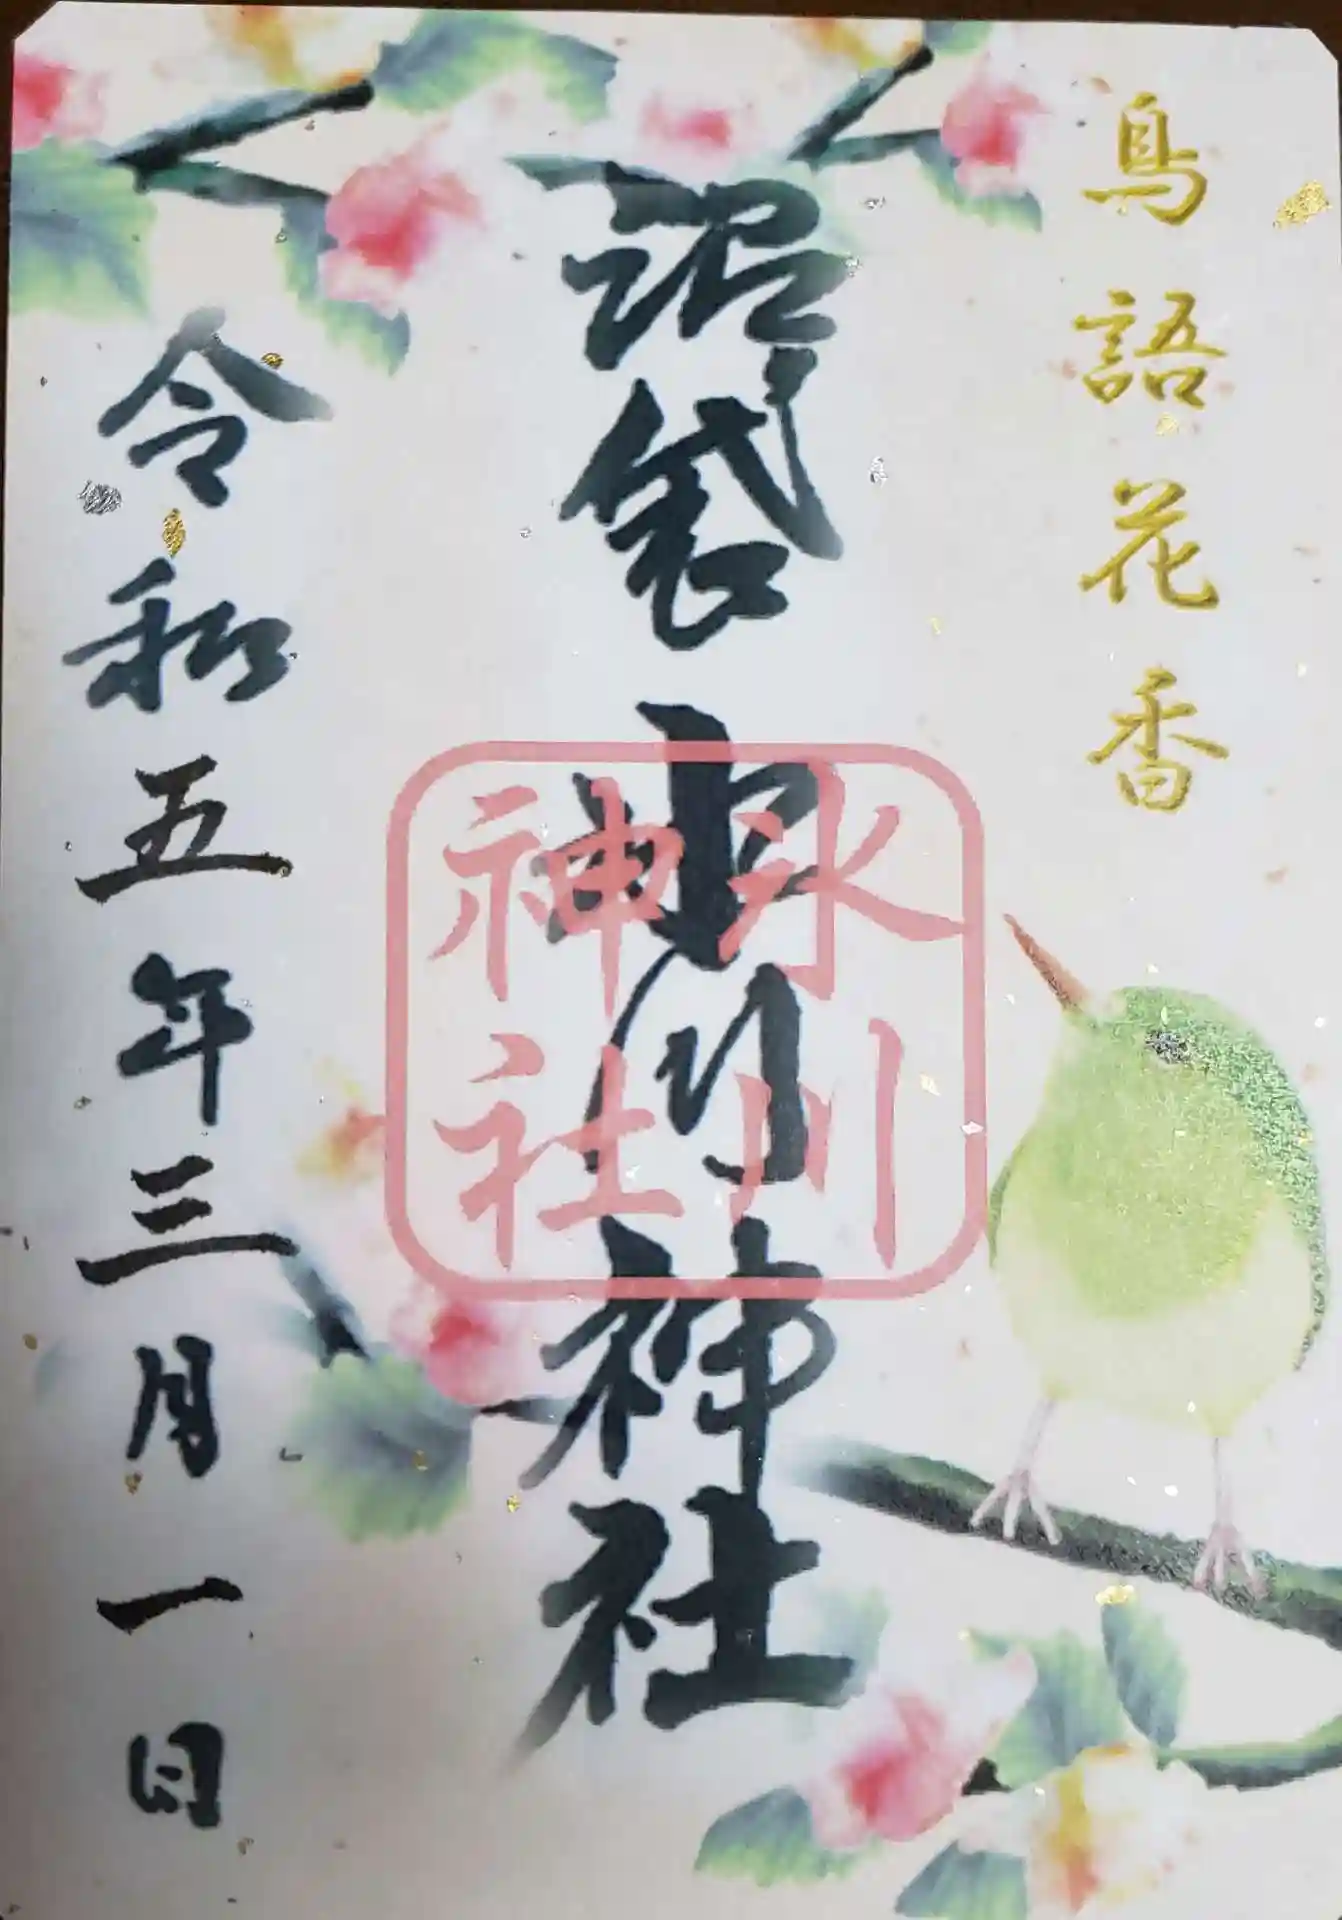 鳥語花香
沼袋氷川神社
氷川
神社
令和五年三月一日